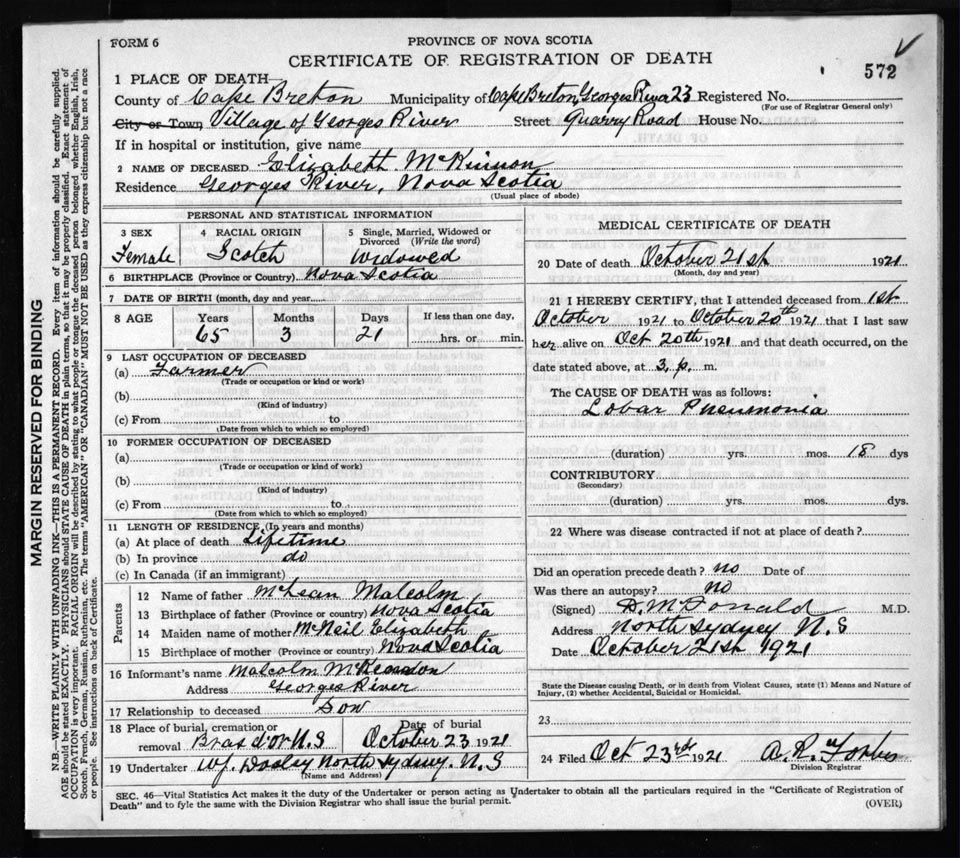 FORM 6
PROVINCE OF NOVA SCOTIA
CERTIFICATE OF REGISTRATION OF DEATH
572
1 PLACE OF DEATH
County of Cape Breton Municipality of Cape Breton, Georges River 23 Registered No.
(For use of Registrar General only)
City or Town Village of Georges River Street Quarry Road House No.
If in hospital or institution, give name
2 NAME OF DECEASED Elizabeth McKinnon
Residence Georges River, Nova Scotia
(Usual place of abode)
PERSONAL AND STATISTICAL INFORMATION
3 SEX 4 RACIAL ORIGIN 5 Single, Married, Widowed or Divorced (Write the word)
Female Scotch Widowed
6 BIRTHPLACE (Province or Country) Nova Scotia
7 DATE OF BIRTH (month, day and year)
8 AGE Years Months Days If less than one day,
65 3 21 hrs. or min.
9 LAST OCCUPATION OF DECEASED
(a) Farmer
(Trade or occupation or kind or work)
(b)
(Kind of industry)
(c) From to
(Date from which to which so employed)
10 FORMER OCCUPATION OF DECEASED
(a)
(Trade or occupation or kind of work)
(b)
(Kind of industry)
(c) From to
(Date from which to which so employed)
11 LENGTH OF RESIDENCE (In years and months)
(a) At place of death Lifetime
(b) In province do
(c) In Canada (if an immigrant)
Parents
12 Name of father McLean Malcolm
13 Birthplace of father (Province or country) Nova Scotia
14 Maiden name of mother McNeil Elizabeth
15 Birthplace of mother (Province or country) Nova Scotia
16 Informant's name Malcolm
Address Georges River
17 Relationship to deceased Son
18 Place of burial, cremation or removal Bras d'or N.S
Date of burial October 23 1921
19 Undertaker Wj. Dooley North Sydney. N.S
(Name and Address)
MEDICAL CERTIFICATE OF DEATH
20 Date of death October 21st 1921
(Month, day and year)
21 I HEREBY CERTIFY, that I attended deceased from 1st
October 1921 to October 20th 1921 that I last saw
her alive on Oct 20th 1921 and that death occurred, on the
date stated above, at 3. p. m.
The CAUSE OF DEATH was as follows:
Lobar Pneumonia
(duration) yrs. mos. 18 dys
CONTRIBUTORY
(Secondary)
(duration) yrs. mos. dys.
22 Where was disease contracted if not at place of death?
Did an operation precede death? no Date of
Was there an autopsy? no
(Signed) D. McDonald M.D.
Address North Sydney N.S
Date October 21st 1921
State the Disease causing Death, or in death from Violent Causes, state (1) Means and Nature of
Injury, (2) whether Accidental, Suicidal or Homicidal.
23
24 Filed Oct 23rd 1921
Division Registrar
SEC. 46—Vital Statistics Act makes it the duty of the Undertaker or person acting as Undertaker to obtain all the particulars required in the "Certificate of Registration of
Death" and to fyle the same with the Division Registrar who shall issue the burial permit.
(OVER)
MARGIN RESERVED FOR BINDING
N.B.—WRITE PLAINLY WITH UNFADING INK—THIS IS A PERMANENT RECORD. Every item of information should be carefully supplied.
AGE should be stated EXACTLY. PHYSICIANS should STATE CAUSE OF DEATH in plain terms, so that it may be properly classified. Exact statement of
OCCUPATION is very important. RACIAL ORIGIN will be described by stating to what people or tongue the deceased person belonged whether English, Irish,
Scotch, French, German, Russian, Ruthenian, etc. The terms "AMERICAN" OR "CANADIAN" MUST NOT BE USED as they express citizenship but not a race
or people. See instructions on back of Certificate.